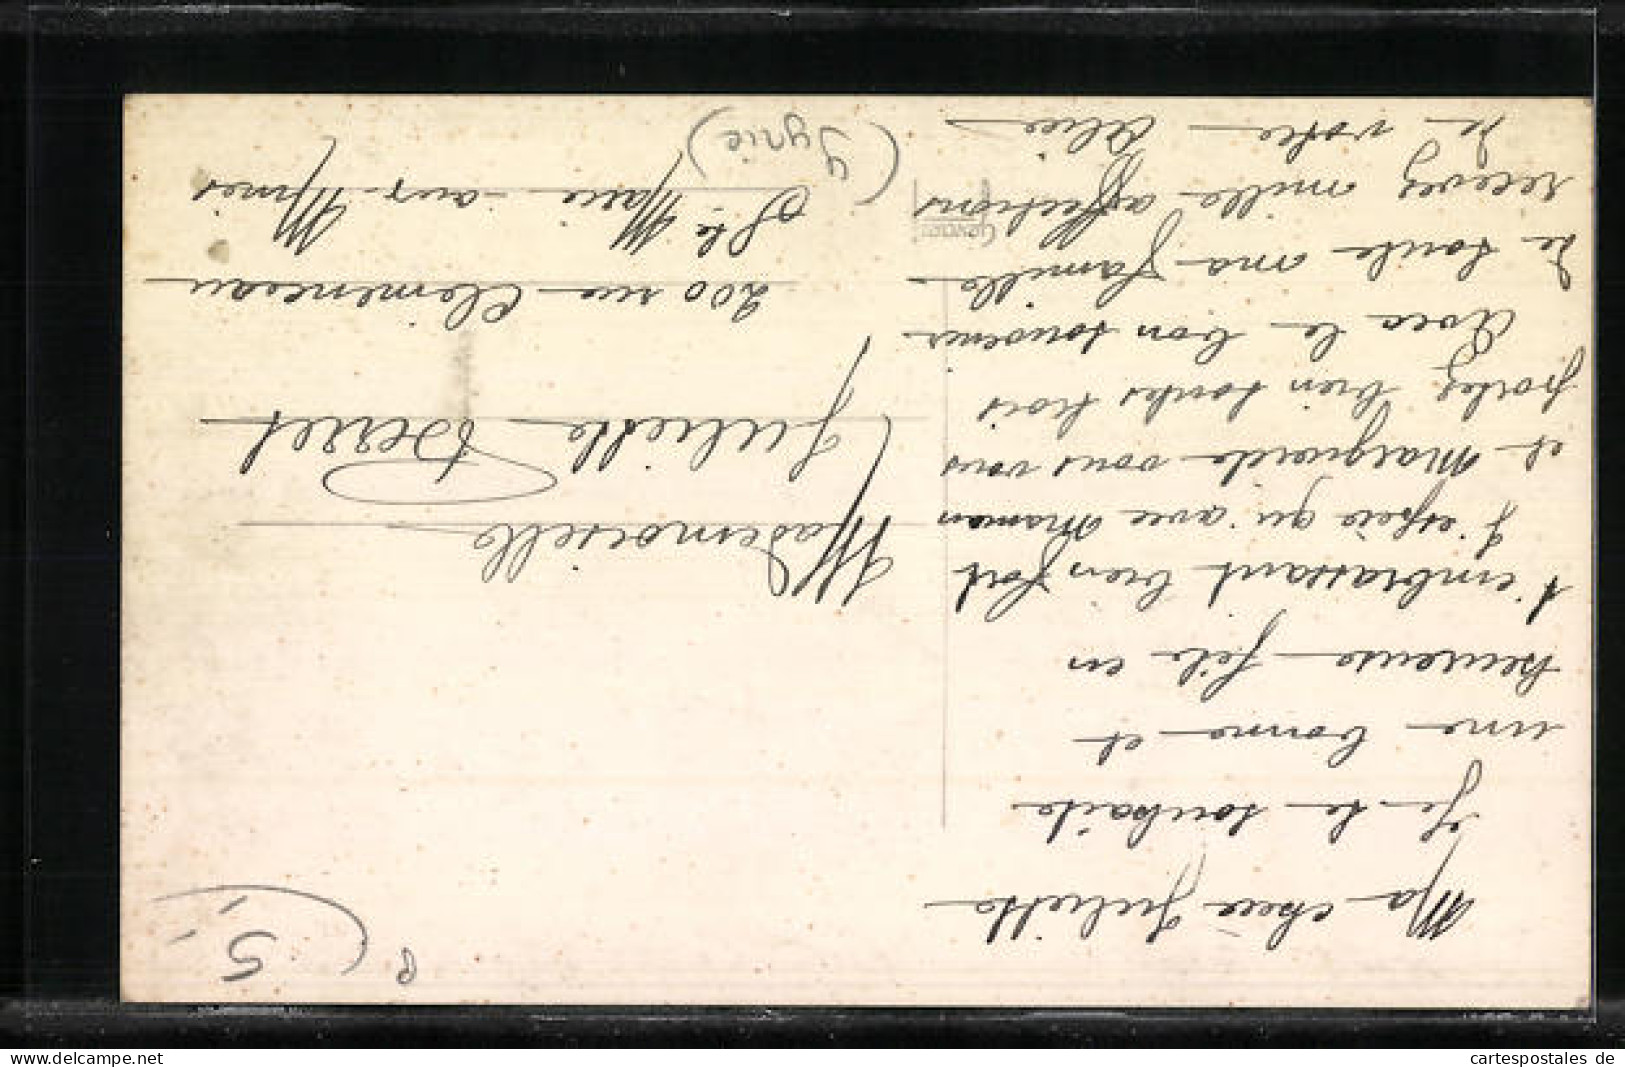 Ma chère Juliette
Je te souhaite
une bonne et
heureuse fête en
t'embrassant bien fort
J'espère qu'avec Maman
et Marguerite vous vous
portez bien toutes trois
Avec le bon souvenir
de toute ma famille
recevez mille affections
de votre Alice
Mademoiselle
Juliette
200 rue Clemenceau
Ste Marie-aux-Mines
(Syrie)
5,-
8
www.delcampe.net
cartespostales de